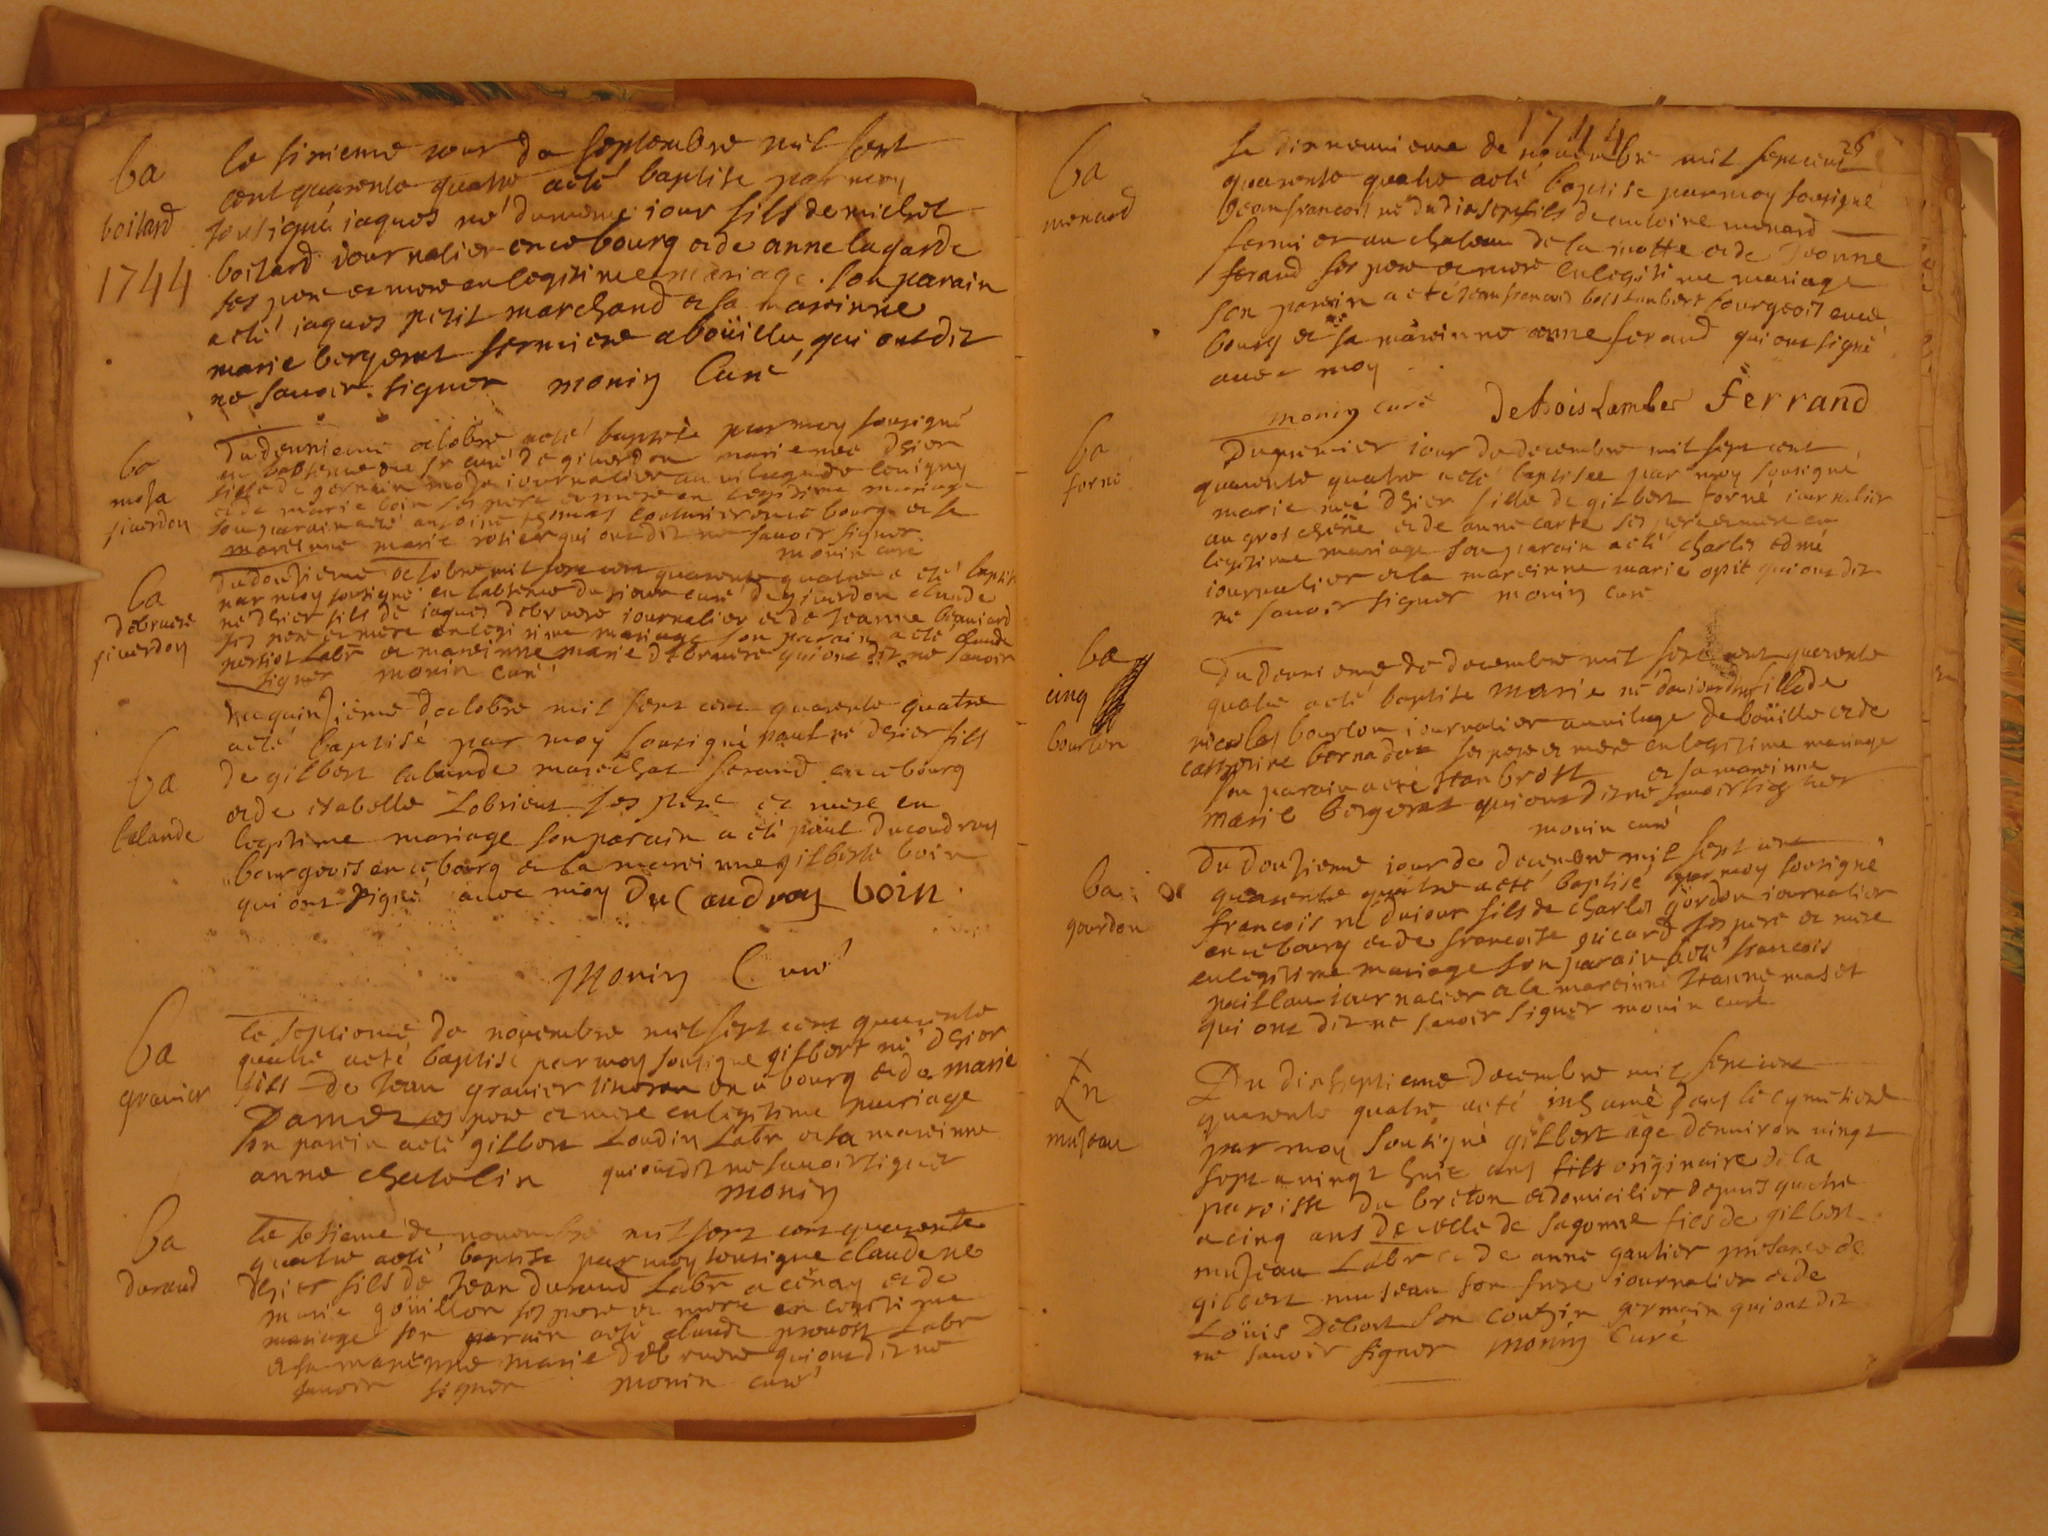 ba
boitard
1744
le sixieme jour de septembre mil sept
cent quarente quatre a eté baptisé par moy
sousigné jaques né du meme jour fils de michel
boitard journalier en ce bourg et de anne lagarde
ses pere et mere en legitime mariage. son parain
a eté jaques petit marchand et sa mareinne
marie bergerat fermiere a boüille, qui ont dit
ne savoir signer monin Curé
ba
mosa
giverdon
du deuxieme octobre a eté baptisée par moy sousigné
en l'absence de sr curé de giverdon marie née d'hier
fille de germain mosa journalier au vilage de
et de marie boin ses pere et mere en legitime mariage
son parain a eté antoine thomas en ce bourg et sa
mareinne marie rosier qui ont dit ne savoir signer.
monin curé
ba
debruere
giverdon
du douzieme octobre mil sept cent quarente quatre a eté baptisé
par moy sousigné en l'absence du sieur curé de giverdon claude
né d'hier fils de jaques debruere journalier et de Jeanne
ses pere et mere en legitime mariage son parain a eté claude
labr et mareinne marie debruere qui ont dit ne savoir
signer monin curé
ba
lalande
du quinzieme d'octobre mil sept cent quarente quatre
a eté baptisé par moy sousigné paul né d'hier fils
de gilbert lalande marechal ferand en ce bourg
et de isabelle Lobrient ses pere et mere en
legitime mariage son parain a eté paul ducoudray
bourgeois en ce bourg et la mareinne gilberte boin
qui ont signé avec moy DuCoudray boin.
Monin Curé
ba
granier
le septieme de novembre mil sept cent quarente
quatre a eté baptisé par moy sousigné gilbert né d'hier
fils de Jean granier en ce bourg et de marie
Damez ses pere et mere en legitime mariage
son parain a eté gilbert Loudin Labr et sa mareinne
anne chatelin qui ont dit ne savoir signer
monin
ba
durand
le de novembre mil sept cent quarente
quatre a eté baptisé par moy sousigné claude né
d'hier fils de Jean durand Labr a cénay et de
marie goüillon ses pere et mere en legitime
mariage son parain a eté claude provost Labr
et sa mareinne marie debruere qui ont dit ne
savoir signer monin curé
1744
26
ba
menard
le dixneuvieme de novembre mil sept cent
quarente quatre a eté baptisé par moy sousigné
jean francois né du dixsept fils de antoine menard
fermier au chateau de la motte et de Jeanne
ferand ses pere et mere en legitime mariage
son parain a eté jean francois boislambert bourgeois en ce
bourg et sa mareinne anne ferand qui ont signé
avec moy
monin curé DeboisLamber Ferrand
ba
forné
Du premier jour de decembre mil sept cent
quarente quatre a eté baptisée par moy sousigné
marie née d'hier fille de gilbert forné journalier
au gros chêne et de anne carte ses pere et mere en
legitime mariage son parain a eté charles edmé
journalier et la mareinne marie opit qui ont dit
ne savoir signer monin curé
ba
cinq
bourlon
Du deuxieme de decembre mil sept cent quarente
quatre a eté baptisé marie né fille de
nicolas bourlon journalier au vilage de boüille et de
catherine bernadat ses pere et mere en legitime mariage
son parain a eté Jean brost et sa mareinne
marie bergerat qui ont dit ne savoir signer
monin curé
ba
gourdon
Du douzieme jour de decembre mil sept cent
quarente quatre a eté baptisé par moy sousigné
francois né du jour fils de charles gordon journalier
en ce bourg et de francoise picard ses pere et mere
en legitime mariage son parain a eté francois
paillau journalier et la mareinne Jeanne maset
qui ont dit ne savoir signer monin curé
En
muzeau
Du dixseptieme decembre mil sept cent
quarente quatre a eté inhumé dans le cymetiere
par moy sousigné gilbert agé d'environ vingt
sept a vingt huit ans fils originaire de la
paroisse du breton et domicilier depuis quatre
a cinq ans de celle de sagonne fils de gilbert
muzeau Labr et de anne gautier presence de
gilbert muzeau son frere journalier et de
Loüis Debort son coutzin germain qui ont dit
ne savoir signer monin Curé